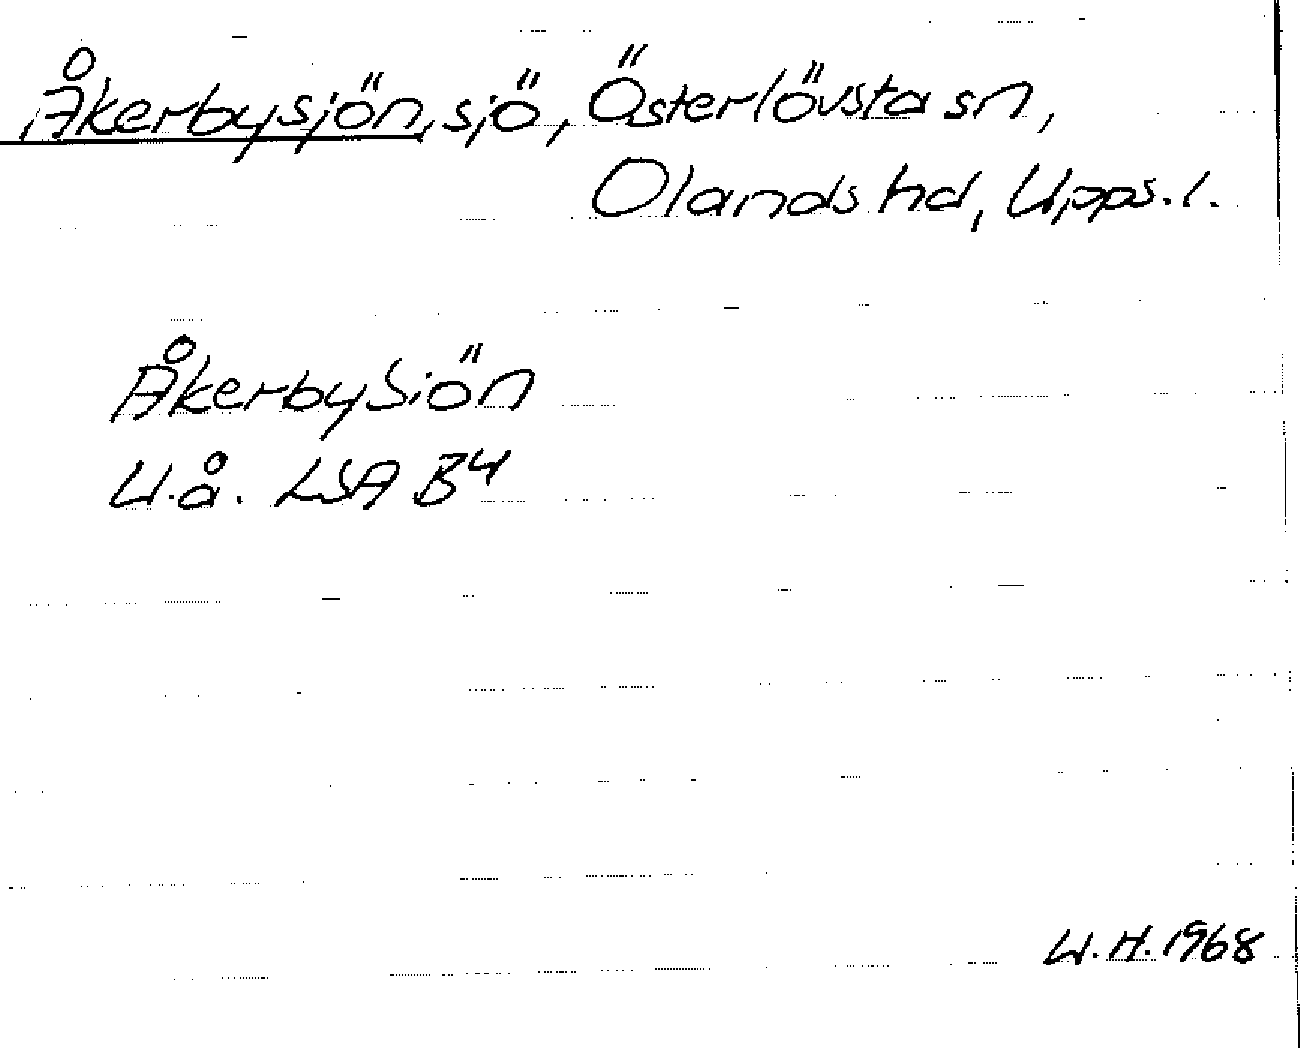 Åkerbysjön, sjö, Österlövsta sn,
Olands hd, Upps. l.
ÅkerbySiön
U.å. LSA B4
U.H. 1968